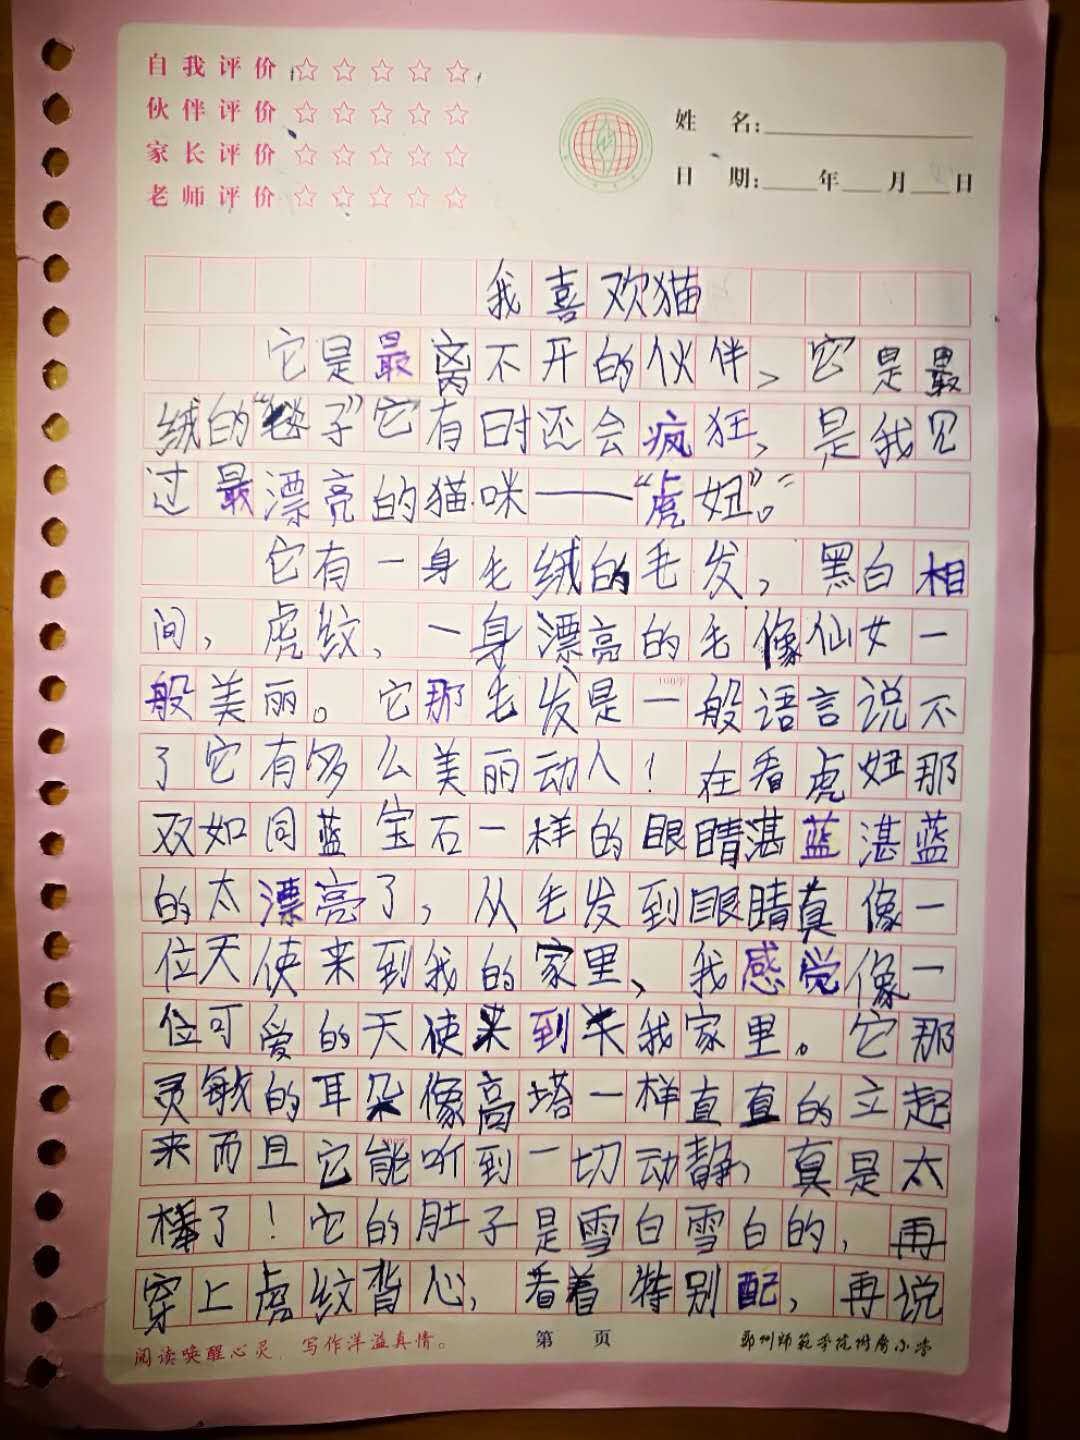 自我评价 ☆☆☆☆☆
伙伴评价 ☆☆☆☆☆
家长评价 ☆☆☆☆☆
老师评价 ☆☆☆☆☆
姓 名:
日 期: 年 月 日
我喜欢猫
它是最离不开的伙伴、它是最
绒的“毯子”它有时还会疯狂、是我见
过最漂亮的猫咪——“虎妞”。
它有一身毛绒的毛发,黑白相
间,虎纹、一身漂亮的毛像仙女一
般美丽。它那毛发是一般语言说不
了它有多么美丽动人!在看虎妞那
双如同蓝宝石一样的眼睛湛蓝湛蓝
的太漂亮了,从毛发到眼睛真像一
位天使来到我的家里、我感觉像一
位可爱的天使来到来我家里。它那
灵敏的耳朵像高塔一样直直的立起
来而且它能听到一切动静,真是太
棒了!它的肚子是雪白雪白的,再
穿上虎纹背心,看着特别配,再说
阅读唤醒心灵 写作洋溢真情。
第 页
郑州师范学院附属小学